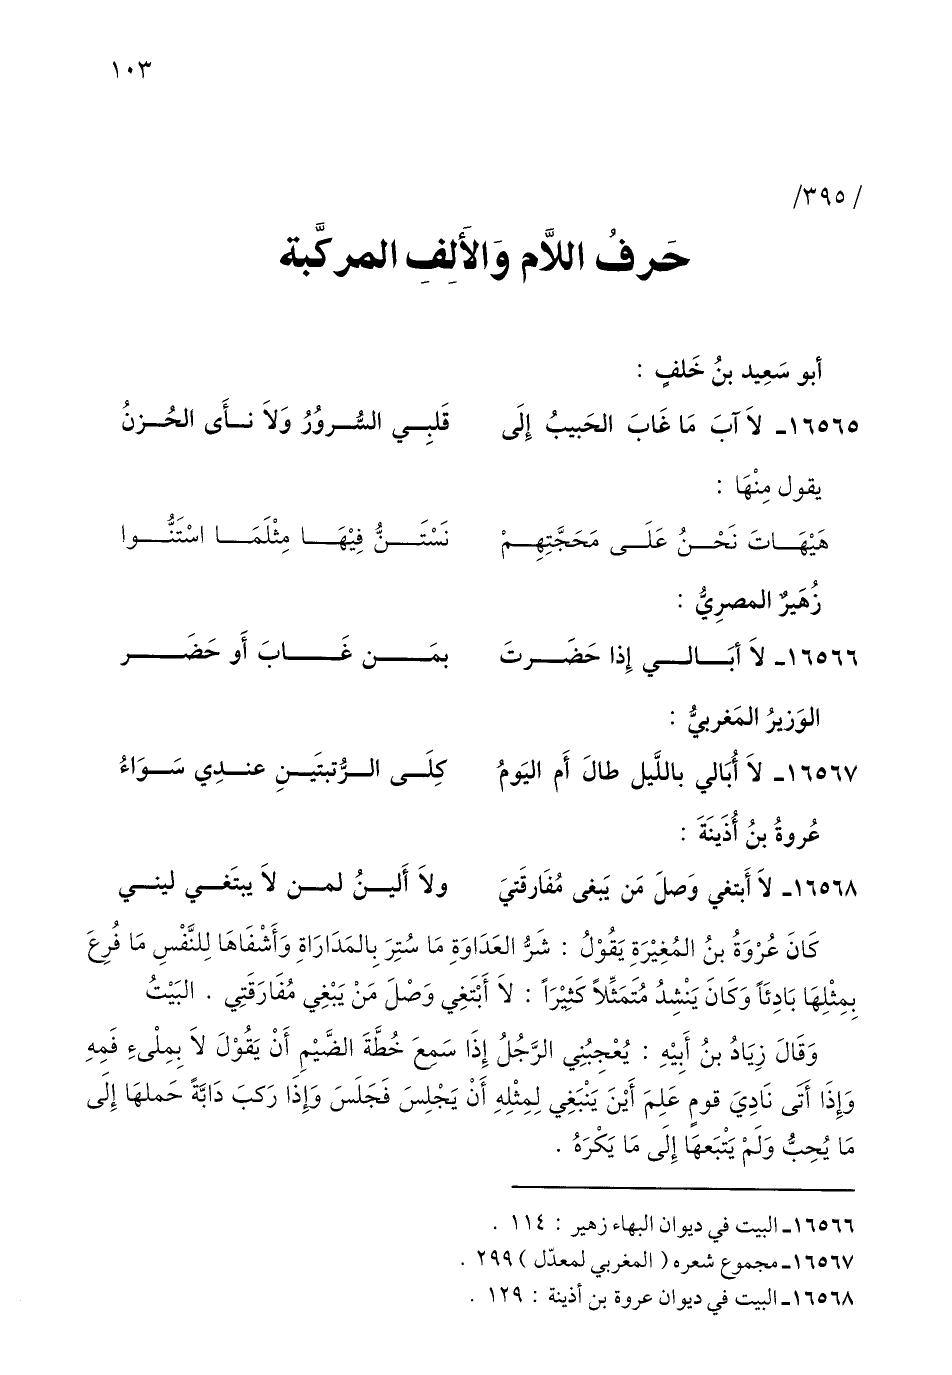 ١٠٣
/٣٩٥/
حَرفُ اللاَّم وَالأَلِفِ المركَّبة
أبو سَعِيد بنُ خَلفٍ :
١٦٥٦٥ـ لاَ آبَ مَا غَابَ الحَبيبُ إلَى قَلبِي السُّرورُ وَلاَ نأَى الحُزنُ
يقول مِنْهَا :
هَيْهَاتَ نَحْنُ عَلَى مَحَجَّتِهِمْ نَسْتَنُّ فِيْهَا مِثْلَمَا اسْتَنُّوا
زُهَيرٌ المصرِيُّ :
١٦٥٦٦ـ لاَ أبَالي إذا حَضَرتَ بمَن غَابَ أو حَضَر
الوَزيرُ المَغربيُّ :
١٦٥٦٧ـ لاَ أُبَالي باللَّيل طالَ أم اليَومُ كِلَى الرُّتبتَينِ عندِي سَوَاءُ
عُروةُ بنُ أُذَينَةَ :
١٦٥٦٨ـ لاَ أبتغي وَصلَ مَن يَبغى مُفَارقَتيَ ولاَ أَلينُ لمن لاَ يبتَغي ليني
كَانَ عُرْوَةُ بنُ المُغِيْرَةِ يَقُوْلُ : شَرُّ العَدَاوَةِ مَا سُتِرَ بِالمَدَارَاةِ وَأَشْفَاهَا لِلنَّفْسِ مَا قُرِعَ
بِمِثْلِهَا بَادِئَاً وَكَانَ يَنْشِدُ مُتَمَثِّلاً كَثِيْرَاً : لاَ أَبْتَغِي وَصْلَ مَنْ يَبْغِي مُفَارَقَتِي . البَيْتُ
وَقَالَ زِيَادُ بنُ أَبِيْهِ : يُعْجِبُنِي الرَّجُلُ إِذَا سَمِعَ خُطَّةَ الضَّيْمِ أَنْ يَقُوْلَ لاَ بِمِلْىءِ فَمِهِ
وَإِذَا أَتَى نَادِيَ قومٍ عَلِمَ أَيْنَ يَنْبَغِي لِمِثْلِهِ أَنْ يَجْلِسَ فَجَلَسَ وَإِذَا رَكبَ دَابَّةً حَملهَا إِلَى
مَا يُحِبُّ وَلَمْ يَتْبَعهَا إِلَى مَا يَكْرَهُ .
١٦٥٦٦ـ البيت في ديوان البهاء زهير : ١١٤ .
١٦٥٦٧ـ مجموع شعره ( المغربي لمعدّل ) ٢٩٩ .
١٦٥٦٨ـ البيت في ديوان عروة بن أذينة : ١٢٩ .